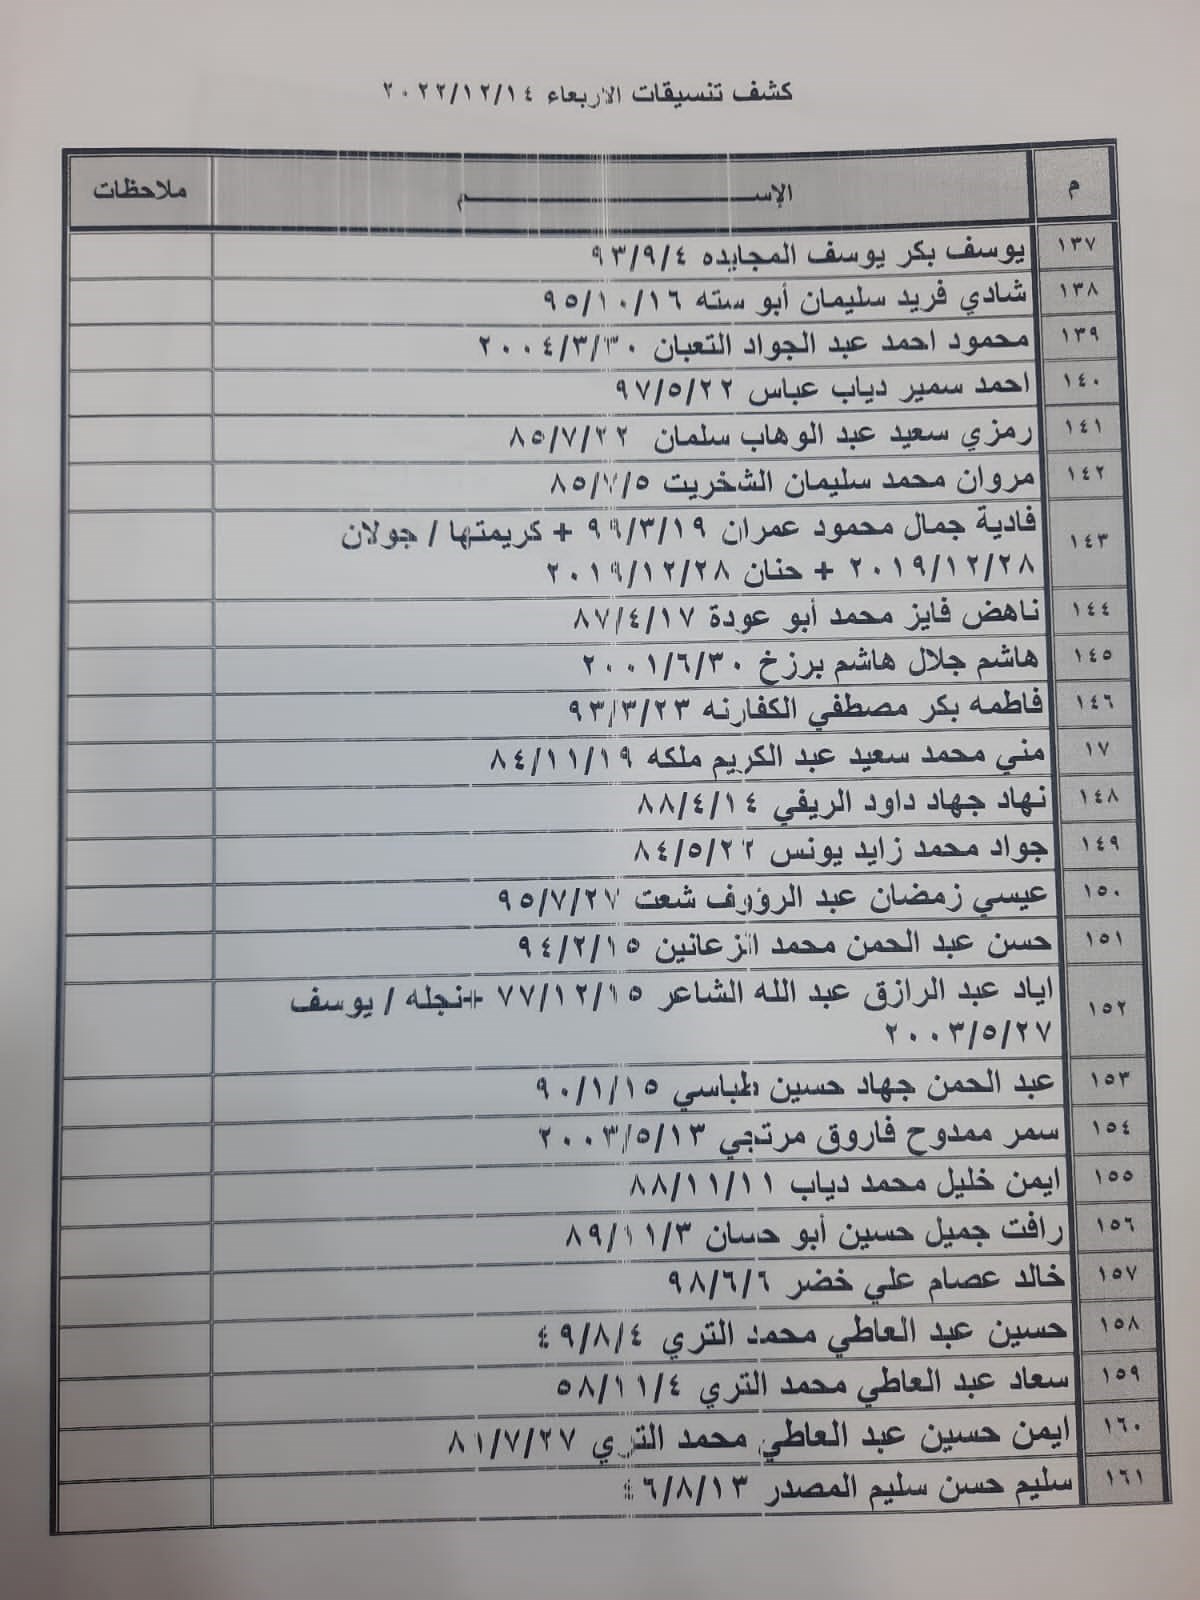 كشف تنسيقات الاربعاء ٢٠٢٢/١٢/١٤
م الإســـــم ملاحظات
١٣٧ يوسف بكر يوسف المجايده ٩٣/٩/٤
١٣٨ شادي فريد سليمان أبو سته ٩٥/١٠/١٦
١٣٩ محمود احمد عبد الجواد التعبان ٢٠٠٤/٣/٣٠
١٤٠ احمد سمير دياب عباس ٩٧/٥/٢٢
١٤١ رمزي سعيد عبد الوهاب سلمان ٨٥/٧/٢٢
١٤٢ مروان محمد سليمان الشخريت ٨٥/٧/٥
١٤٣ فادية جمال محمود عمران ٩٦/٣/١٩ + كريمتها / جولان
٢٠١٩/١٢/٢٨ + حنان ٢٠١٩/١٢/٢٨
١٤٤ ناهض فايز محمد أبو عودة ٨٧/٤/١٧
١٤٥ هاشم جلال هاشم برزخ ٢٠٠١/٦/٣٠
١٤٦ فاطمه بكر مصطفي الكفارنه ٩٣/٣/٢٣
١٧ مني محمد سعيد عبد الكريم ملكه ٨٤/١١/١٩
١٤٨ نهاد جهاد داود الريفي ٨٨/٤/١٤
١٤٩ جواد محمد زايد يونس ٨٤/٥/٢٢
١٥٠ عيسي زمضان عبد الرؤوف شعت ٩٥/٧/٢٧
١٥١ حسن عبد الحمن محمد الزعانين ٩٤/٢/١٥
١٥٢ اياد عبد الرازق عبد الله الشاعر ٧٧/١٢/١٥ +نجله / يوسف
٢٠٠٣/٥/٢٧
١٥٣ عبد الحمن جهاد حسين طباسي ٩٠/١/١٥
١٥٤ سمر ممدوح فاروق مرتجي ٢٠٠٣/٥/١٣
١٥٥ ايمن خليل محمد دياب ٨٨/١١/١١
١٥٦ رافت جميل حسين أبو حسان ٨٩/١١/٣
١٥٧ خالد عصام علي خضر ٩٨/٦/٦
١٥٨ حسين عبد العاطي محمد التري ٤٩/٨/٤
١٥٩ سعاد عبد العاطي محمد التري ٥٨/١١/٤
١٦٠ ايمن حسين عبد العاطي محمد التري ٨١/٧/٢٧
١٦١ سليم حسن سليم المصدر ٤٦/٨/١٣